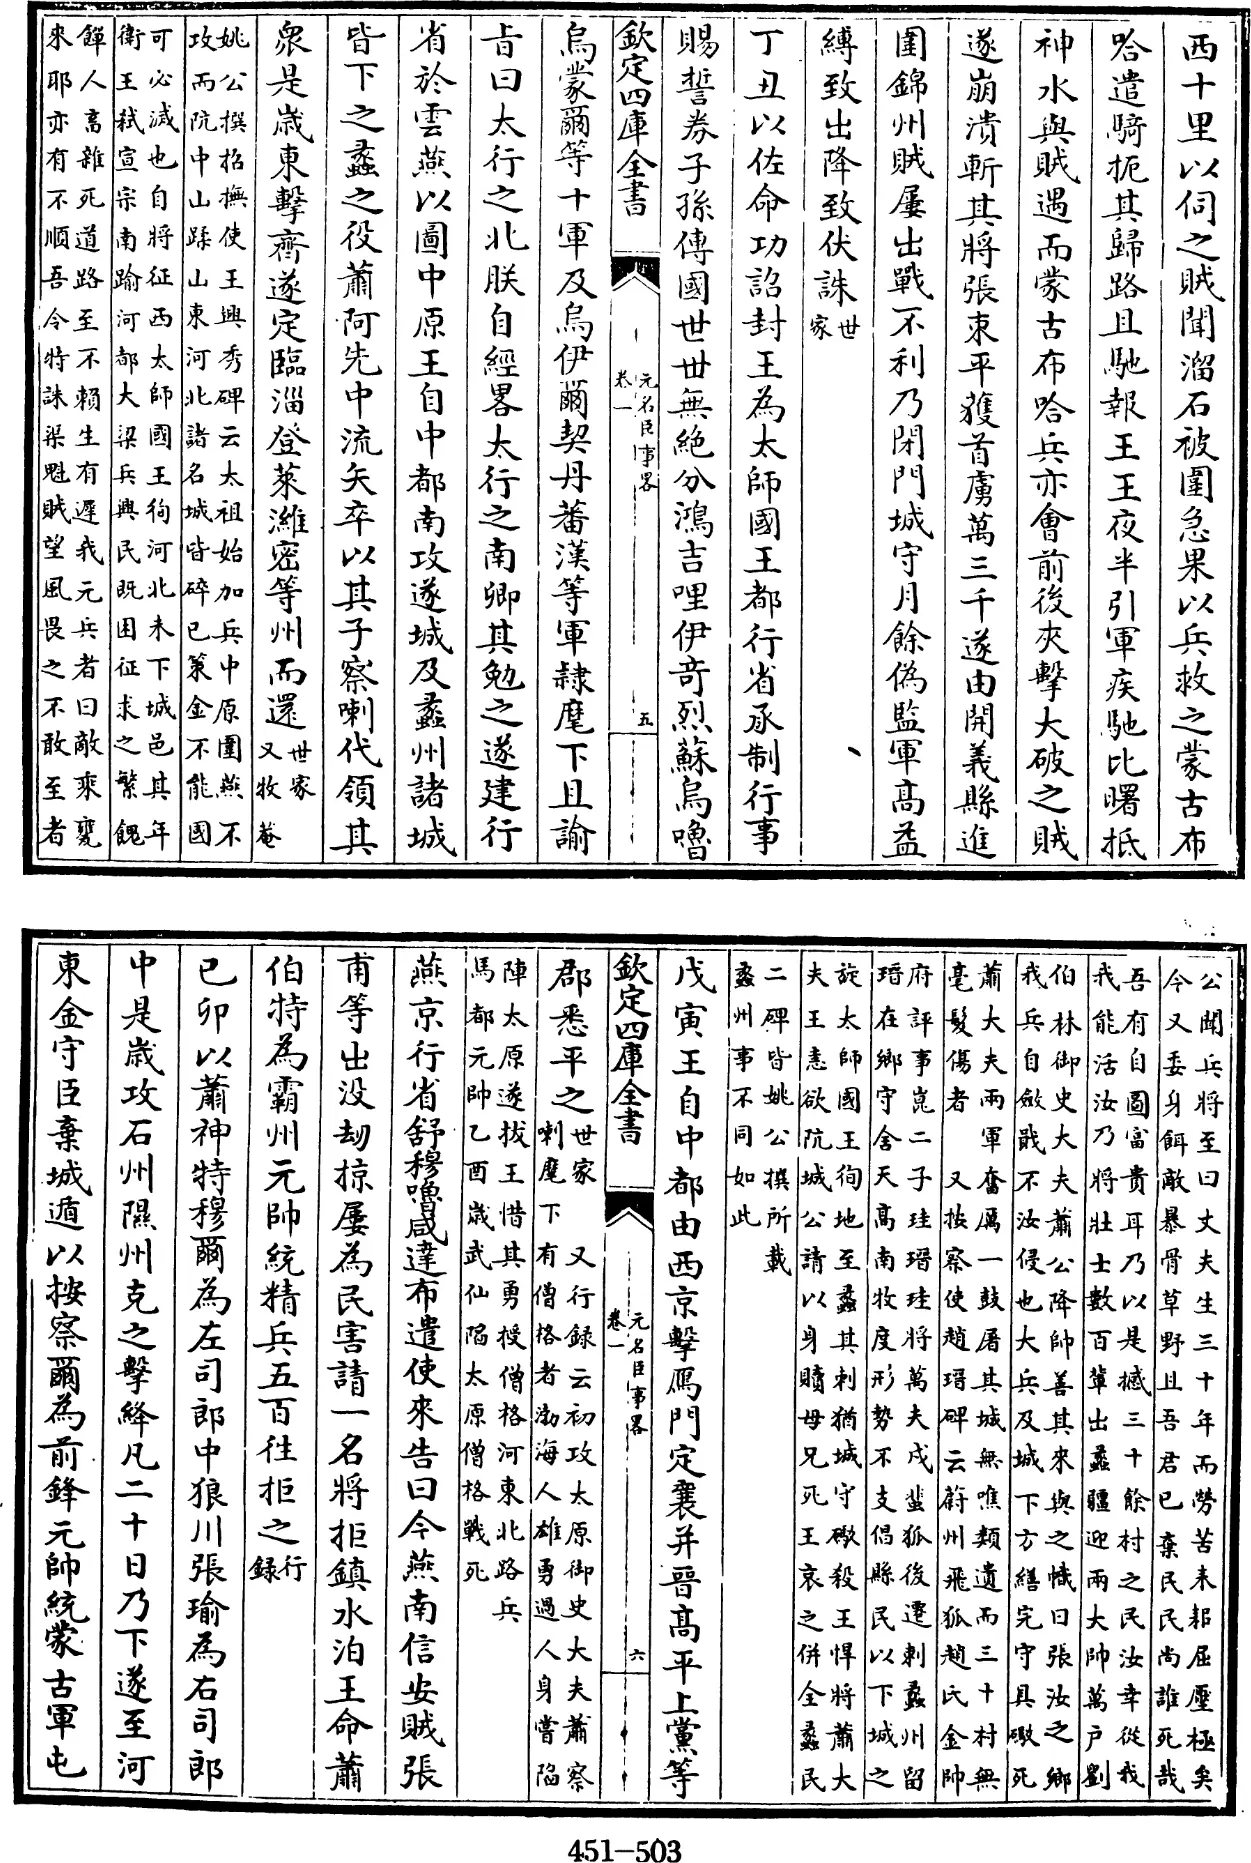 西十里以伺之賊聞溜石被圍急果以兵救之蒙古布
哈遣騎扼其歸路且馳報王王夜半引軍疾馳比曙抵
神水與賊遇而蒙古布哈兵亦會前後夾擊大破之賊
遂崩潰斬其將張東平獲首虜萬三千遂由開義縣進
圍錦州賊屢出戰不利乃閉門城守月餘偽監軍高益
縛致出降致伏誅世
家
丁丑以佐命功詔封王為太師國王都行省承制行事
賜誓券子孫傳國世世無絶分鴻吉哩伊竒烈蘇烏嚕
欽定四庫全書
元名臣事畧
卷一
五
烏蒙爾等十軍及烏伊爾契丹蕃漢等軍隸麾下且諭
㫖曰太行之北朕自經畧太行之南卿其勉之遂建行
省於雲燕以圖中原王自中都南攻遂城及蠡州諸城
皆下之蠡之役蕭阿先中流矢卒以其子察喇代領其
衆是歳東擊齊遂定臨淄登萊濰密等州而還世家
又牧菴
姚公撰招撫使王興秀碑云太祖始加兵中原圍燕不
攻而阬中山蹂山東河北諸名城皆碎已策金不能國
可必滅也自將征西太師國王徇河北未下城邑其年
衛王弒宣宗南踰河都大梁兵興民既困征求之繁餽
餫人畜雜死道路至不賴生有遲我元兵者曰敵來寛
來耶亦有不順吾令特誅渠魁賊望風畏之不敢至者
公聞兵將至曰丈夫生三十年而勞苦未耜屈壓極矣
今又委身餌敵暴骨草野且吾君已棄民民尚誰死哉
吾有自圖富貴耳乃以是撼三十餘村之民汝幸從我
我能活汝乃將壯士數百軰出蠡疆迎兩大帥萬户劉
伯林御史大夫蕭公降帥善其來與之幟曰張汝之鄉
我兵自斂戢不汝侵也大兵及城下方繕完守具礮死
蕭大夫兩軍奮厲一鼓屠其城無噍類遺而三十村無
毫髮傷者　又按察使趙瑨碑云蔚州飛狐趙氏金帥
府評事崑二子珪瑨珪將萬夫戍蜚狐後遷刺蠡州留
瑨在鄉守舍天髙南牧度形勢不支倡縣民以下城之
旋太師國王徇地至蠡其刺猶城守礮殺王悍將蕭大
夫王恚欲阬城公請以身贖母兄死王哀之併全蠡民
二碑皆姚公撰所載
蠡州事不同如此
戊寅王自中都由西京擊鴈門定襄并晉髙平上黨等
欽定四庫全書
元名臣事畧
卷一
六
郡悉平之世家　又行録云初攻太原御史大夫蕭察
喇麾下有僧格者渤海人雄勇過人身嘗陷
陣太原遂拔王惜其勇授僧格河東北路兵
馬都元帥乙酉歳武仙陷太原僧格戰死
燕京行省舒穆嚕咸達布遣使來告曰今燕南信安賊張
甫等出没刼掠屢為民害請一名將拒鎮水泊王命蕭
伯特為霸州元帥統精兵五百徃拒之行
録
已卯以蕭神特穆爾為左司郎中狼川張瑜為右司郎
中是歳攻石州隰州克之擊絳凡二十日乃下遂至河
東金守臣棄城遁以按察爾為前鋒元帥統蒙古軍屯
451-503